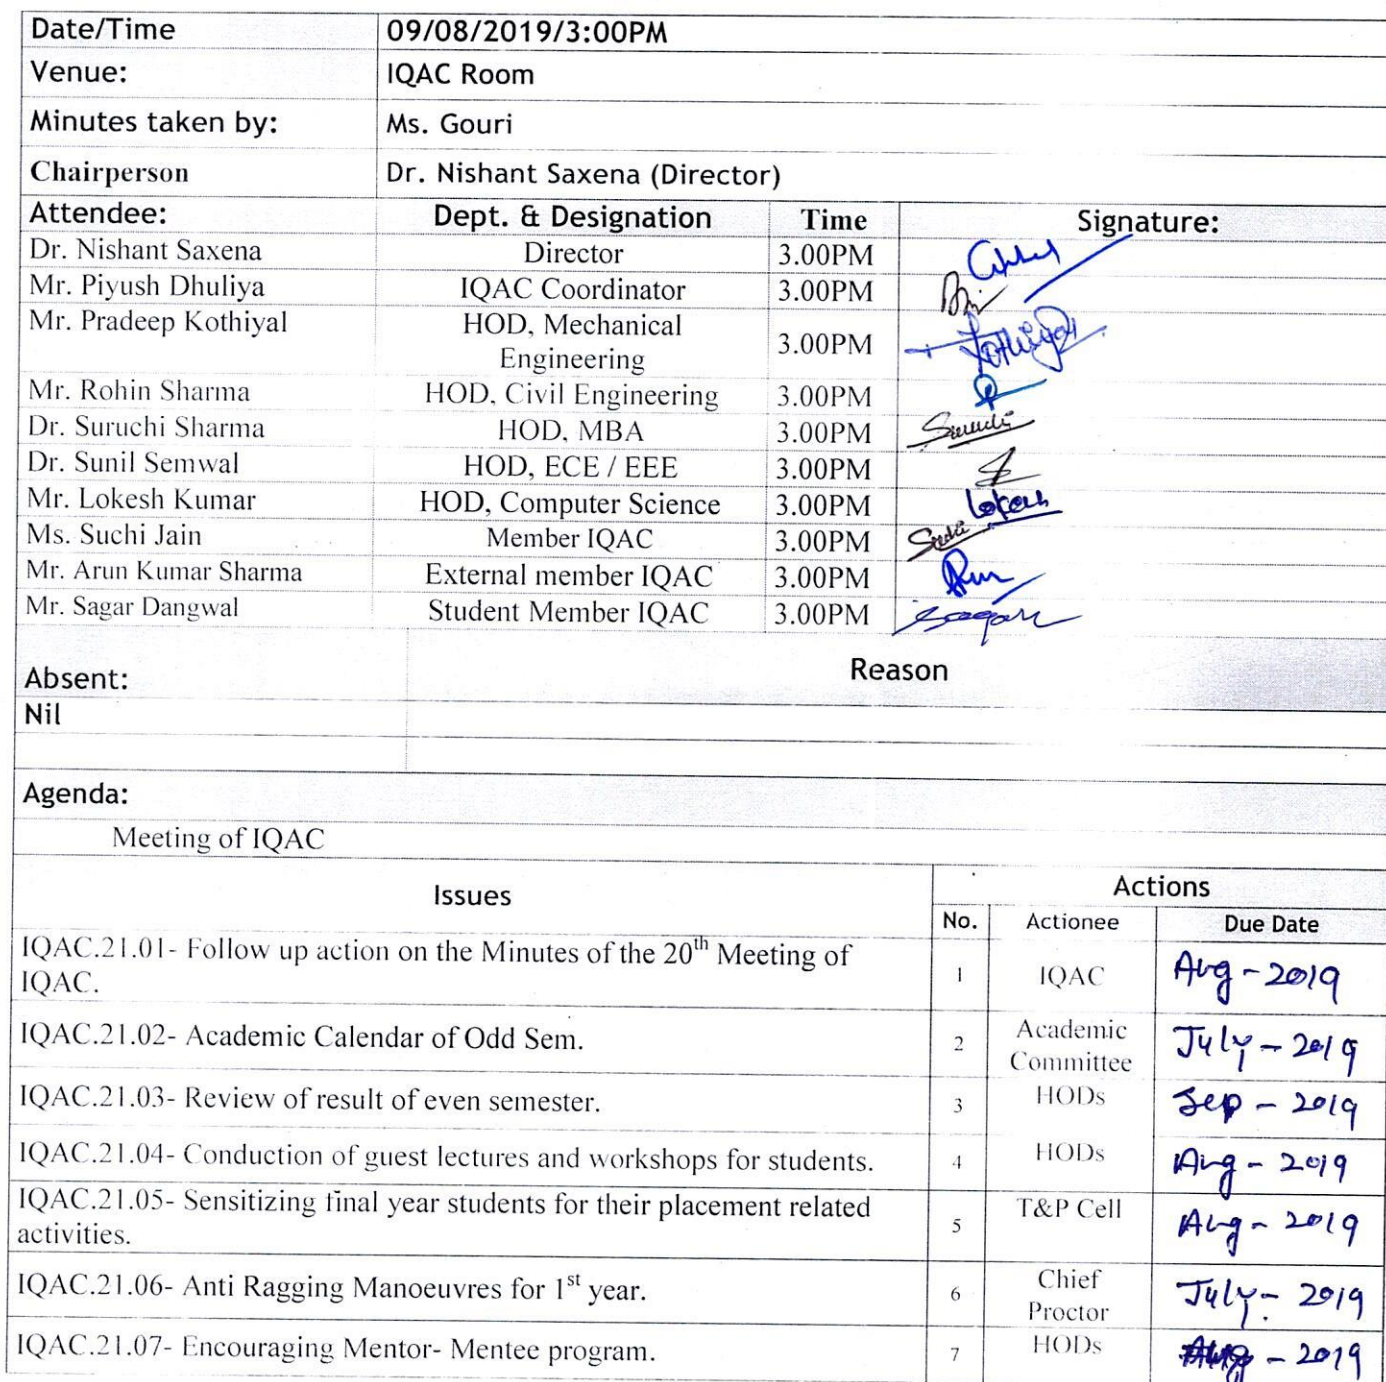 Date/Time 09/08/2019/3:00PM
Venue: IQAC Room
Minutes taken by: Ms. Gouri
Chairperson Dr. Nishant Saxena (Director)
Attendee: Dept. & Designation Time Signature:
Dr. Nishant Saxena Director 3.00PM
Mr. Piyush Dhuliya IQAC Coordinator 3.00PM
Mr. Pradeep Kothiyal HOD, Mechanical
Engineering 3.00PM Kothiyal
Mr. Rohin Sharma HOD, Civil Engineering 3.00PM
Dr. Suruchi Sharma HOD, MBA 3.00PM
Dr. Sunil Semwal HOD, ECE / EEE 3.00PM
Mr. Lokesh Kumar HOD, Computer Science 3.00PM Lokesh
Ms. Suchi Jain Member IQAC 3.00PM
Mr. Arun Kumar Sharma External member IQAC 3.00PM
Mr. Sagar Dangwal Student Member IQAC 3.00PM Sagar
Absent: Reason
Nil
Agenda:
Meeting of IQAC
Issues Actions
No. Actionee Due Date
IQAC.21.01- Follow up action on the Minutes of the 20th Meeting of
IQAC. 1 IQAC Aug - 2019
IQAC.21.02- Academic Calendar of Odd Sem. 2 Academic
Committee July - 2019
IQAC.21.03- Review of result of even semester. 3 HODs Sep - 2019
IQAC.21.04- Conduction of guest lectures and workshops for students. 4 HODs Aug - 2019
IQAC.21.05- Sensitizing final year students for their placement related
activities. 5 T&P Cell Aug - 2019
IQAC.21.06- Anti Ragging Manoeuvres for 1st year. 6 Chief
Proctor July - 2019
IQAC.21.07- Encouraging Mentor- Mentee program. 7 HODs Aug - 2019